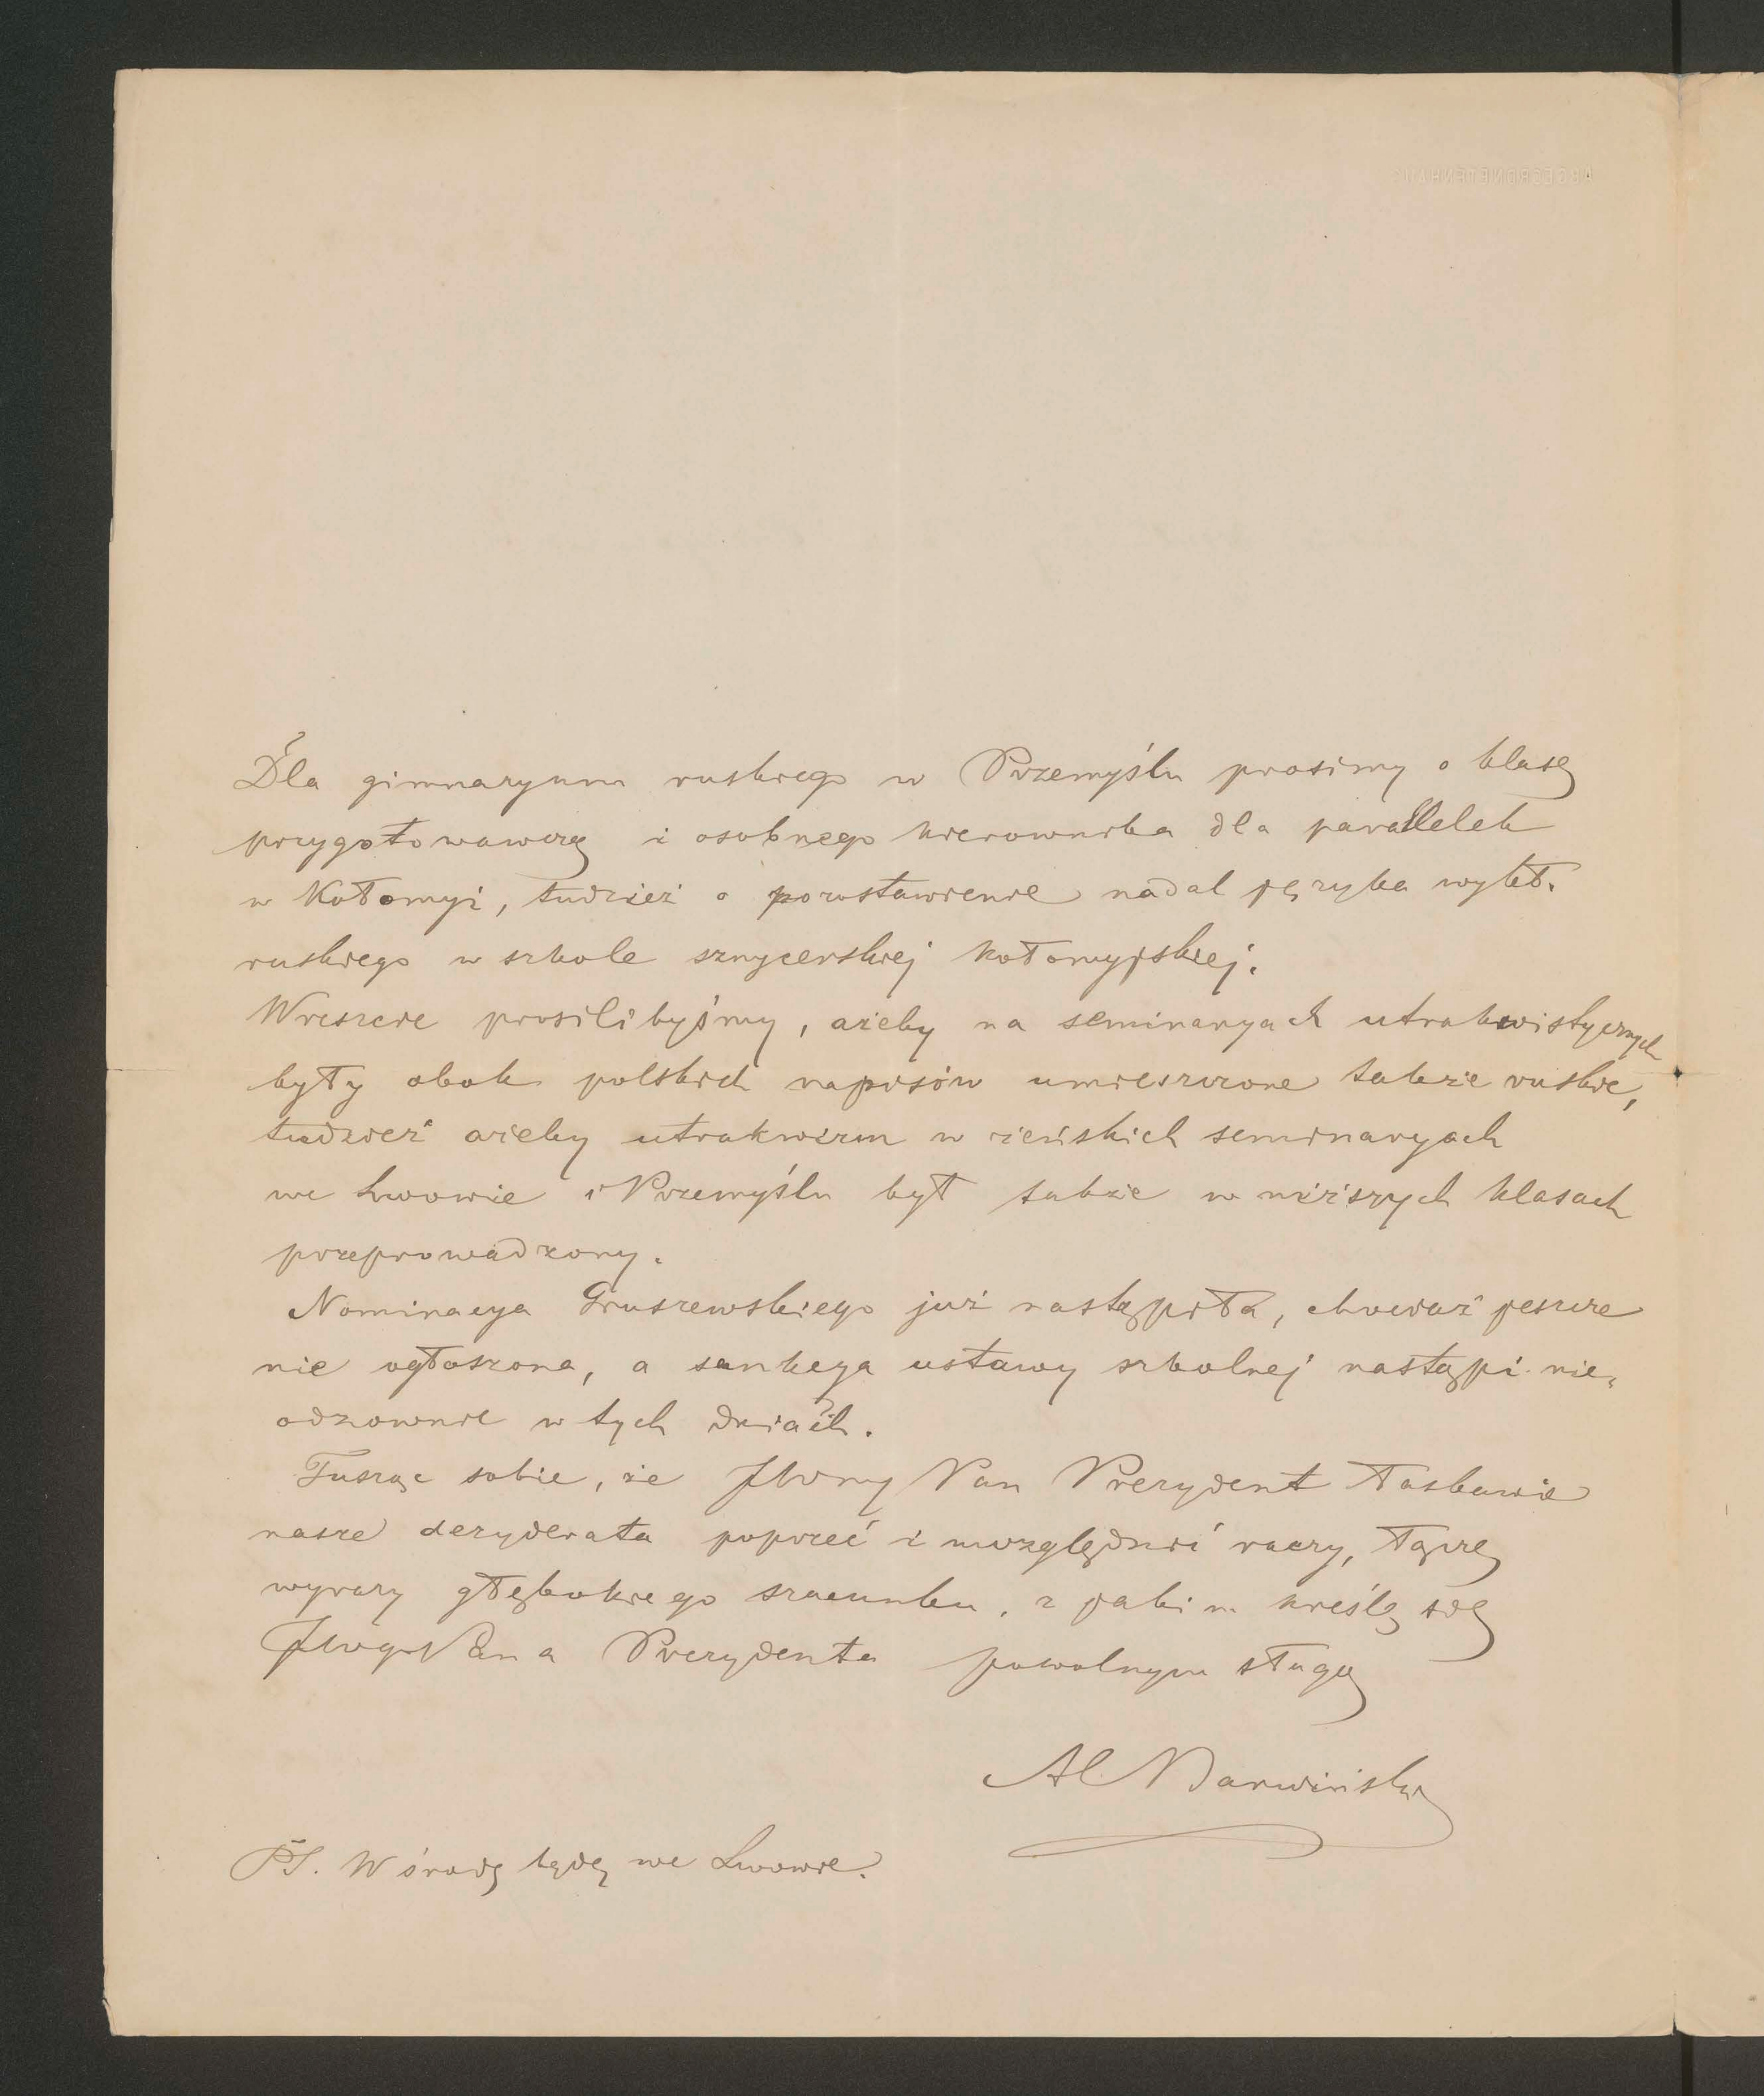 ABGEORDNETENHAUS
Dla gimnazyum ruskiego w Przemyślu prosimy o klasę
przygotowawczą i osobnego kierownika dla parallelek
w Kołomyi, tudzież o pozostawienie nadal języka wykł.
ruskiego w szkole snycerskiej kołomyjskiej.
Wreszcie prosilibyśmy, ażeby na seminaryach utrakwistycznych
były obok polskich napisów umieszczone także ruskie,
tudzież ażeby utrakwizm w żeńskich seminaryach
we Lwowie i Przemyślu był także w niższych klasach
przeprowadzony.
Nominacya Gruszewskiego już nastąpiła, chociaż jeszcze
nie ogłoszona, a sankcya ustawy szkolnej nastąpi nie-
odzownie w tych dniach.
Tusząc sobie, że JWny Pan Prezydent łaskawie
nasze dezyderata poprzeć i uwzględnić raczy, łączę
wyrazy głębokiego szacunku, z jakim kreślę się
JWgo Pana Prezydenta powolnym sługą
Al Barwiński
PS. W środę będę we Lwowie.